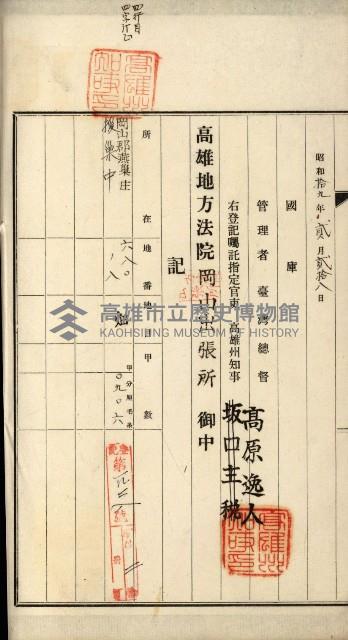 四行目
四字訂正
昭和拾九年貳月貳拾八日
國庫
管理者 臺灣總督
右登記囑託指定官吏 高雄州知事
高原逸人
坂口主税
高雄地方法院岡山出張所 御中
記
所在 地番 地目 甲數
甲分厘毛糸
岡山郡燕巢庄
援巢中
六八〇
ノ八
〇九〇六
登記
第
號
高雄州知事印
高雄市立歷史博物館
KAOHSIUNG MUSEUM OF HISTORY